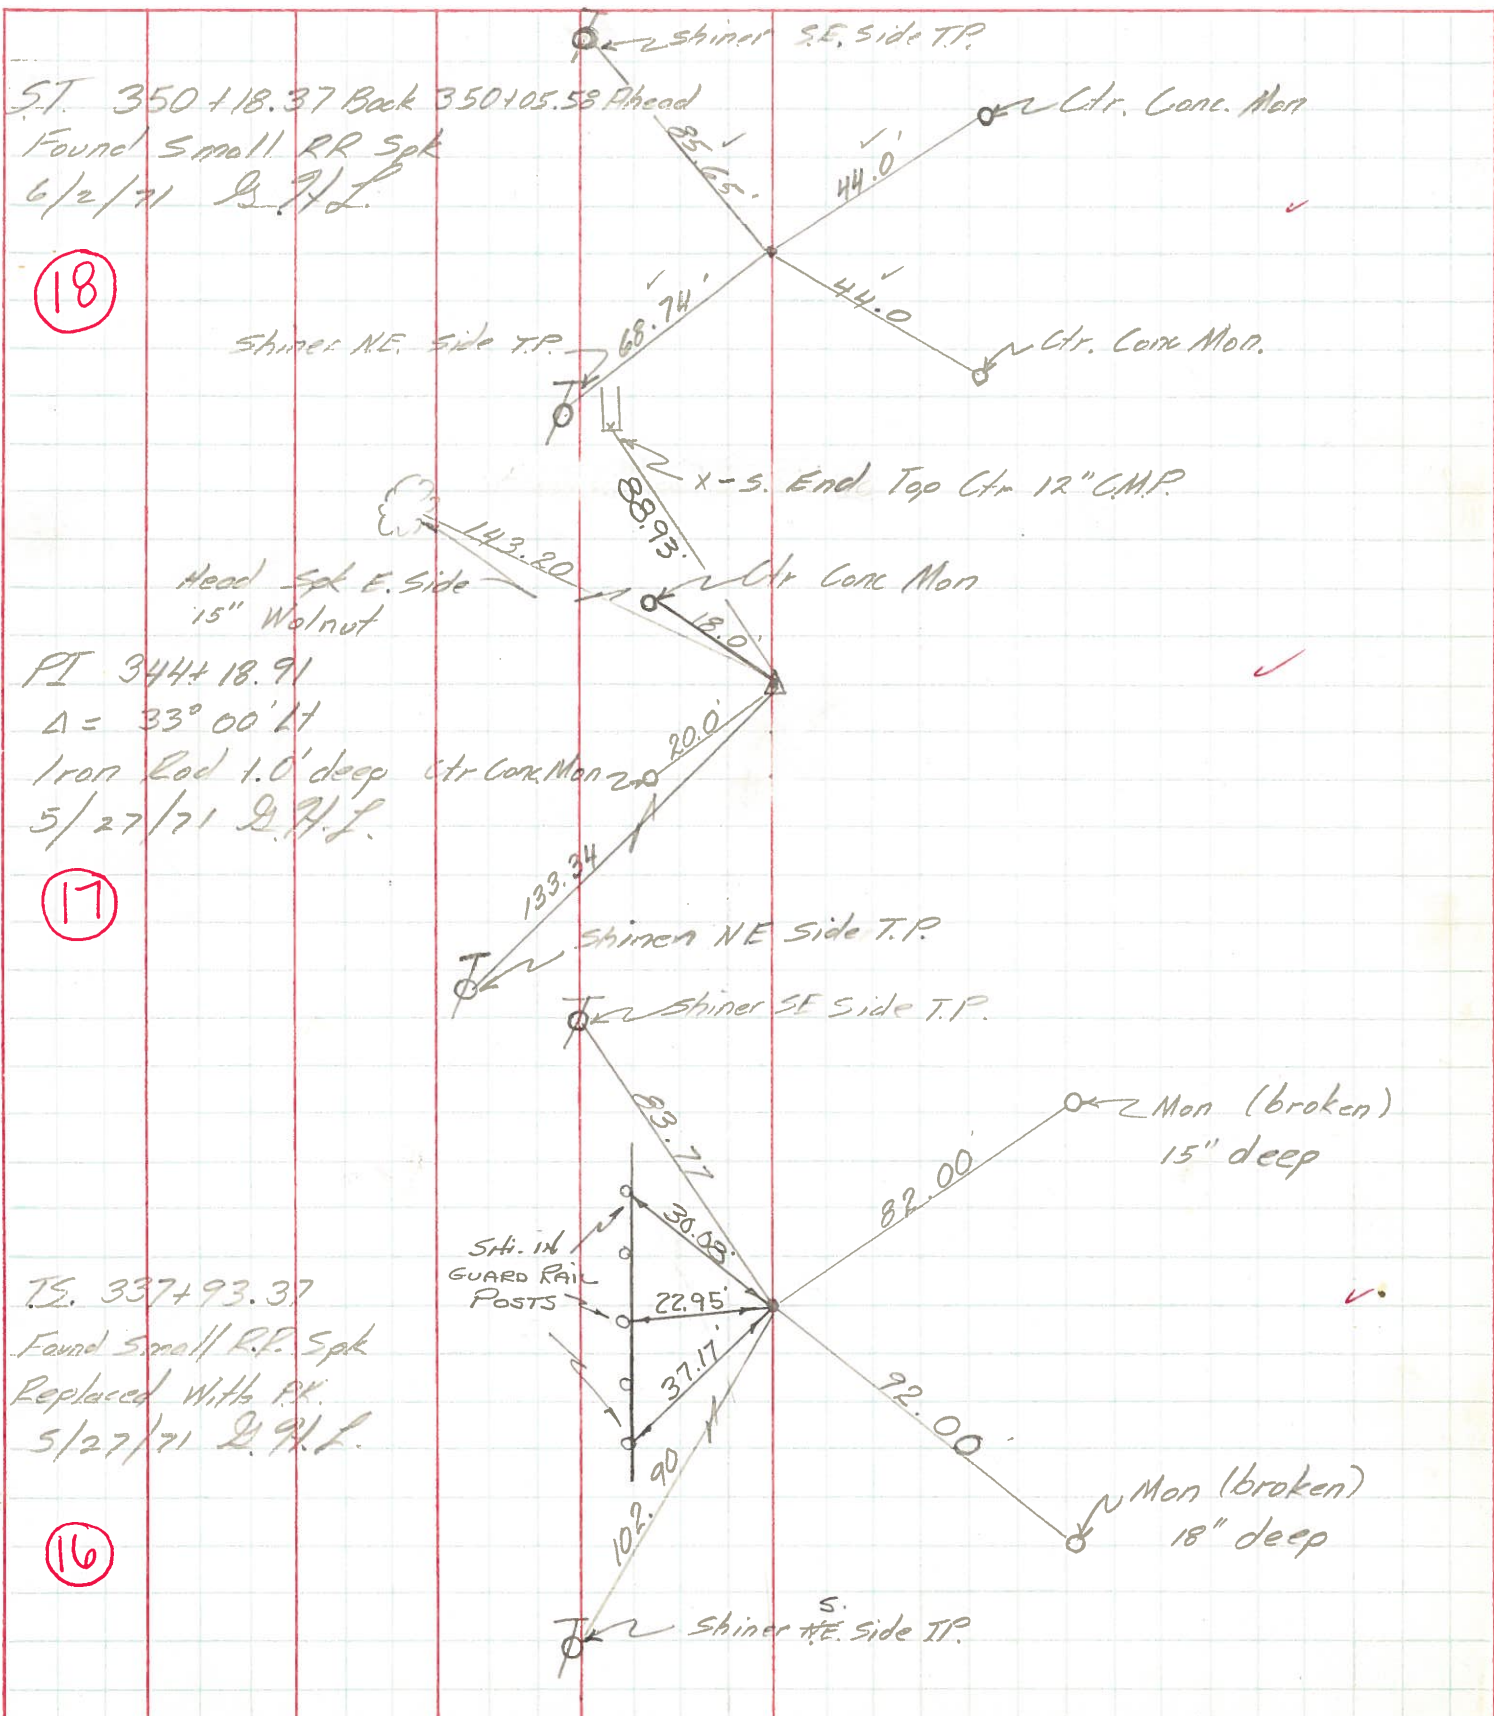 Shiner S.E. Side T.P.
S.T. 350+18.37 Back 350+05.58 Ahead
Found Small RR Spk
6/2/71 G.H.L.
18
85.65
44.0'
Ctr. Conc. Mon
68.74'
44.0
Shiner N.E. Side T.P.
Ctr. Conc Mon.
x-S. End Top Ctr 12" C.M.P.
88.93'
143.20
Head Spk E. Side
15" Walnut
Ctr Conc Mon
18.0'
PI 344+18.91
Δ = 33° 00' Lt
Iron Rod 1.0' deep
5/27/71 G.H.L.
17
20.0'
Ctr Conc. Mon
133.34
Shiner NE Side T.P.
Shiner SE Side T.P.
83.77
Mon (broken)
15" deep
82.00'
30.08'
SHI. IN
GUARD RAIL
POSTS
22.95'
37.17'
T.S. 337+93.37
Found Small R.R. Spk
Replaced With P.K.
5/27/71 G.H.L.
16
92.00'
102.90
Mon (broken)
18" deep
S.
Shiner N.E. Side T.P.